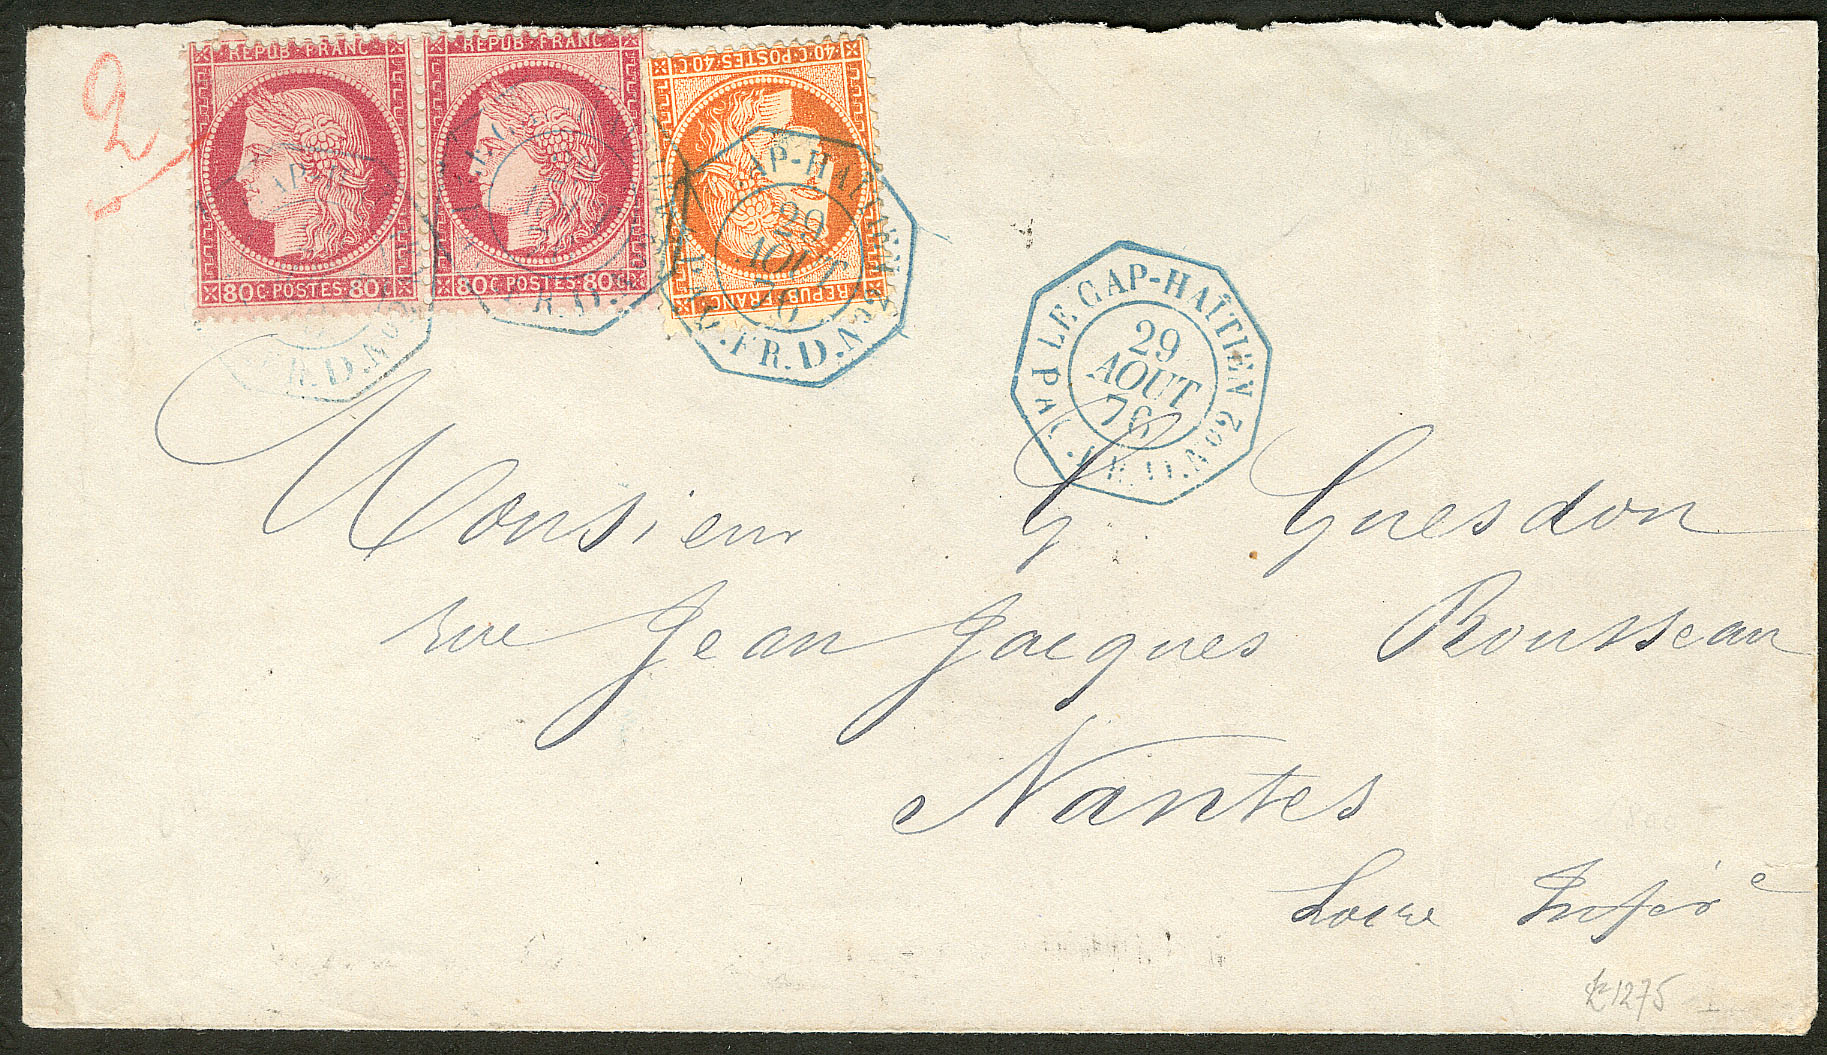 2
REPUB·FRANC
80C·POSTES·80C
REPUB·FRANC
80C·POSTES·80C
40·C·POSTES·40·C
REPUB·FRANC
CAP-HAÏTIEN
29
AOUT
76
PAQ.FR.D.No2
LE CAP-HAÏTIEN
29
AOUT
76
PAQ.FR.D.No2
Monsieur G Guesdon
rue Jean Jacques Rousseau
Nantes
Loire Inferre
1275